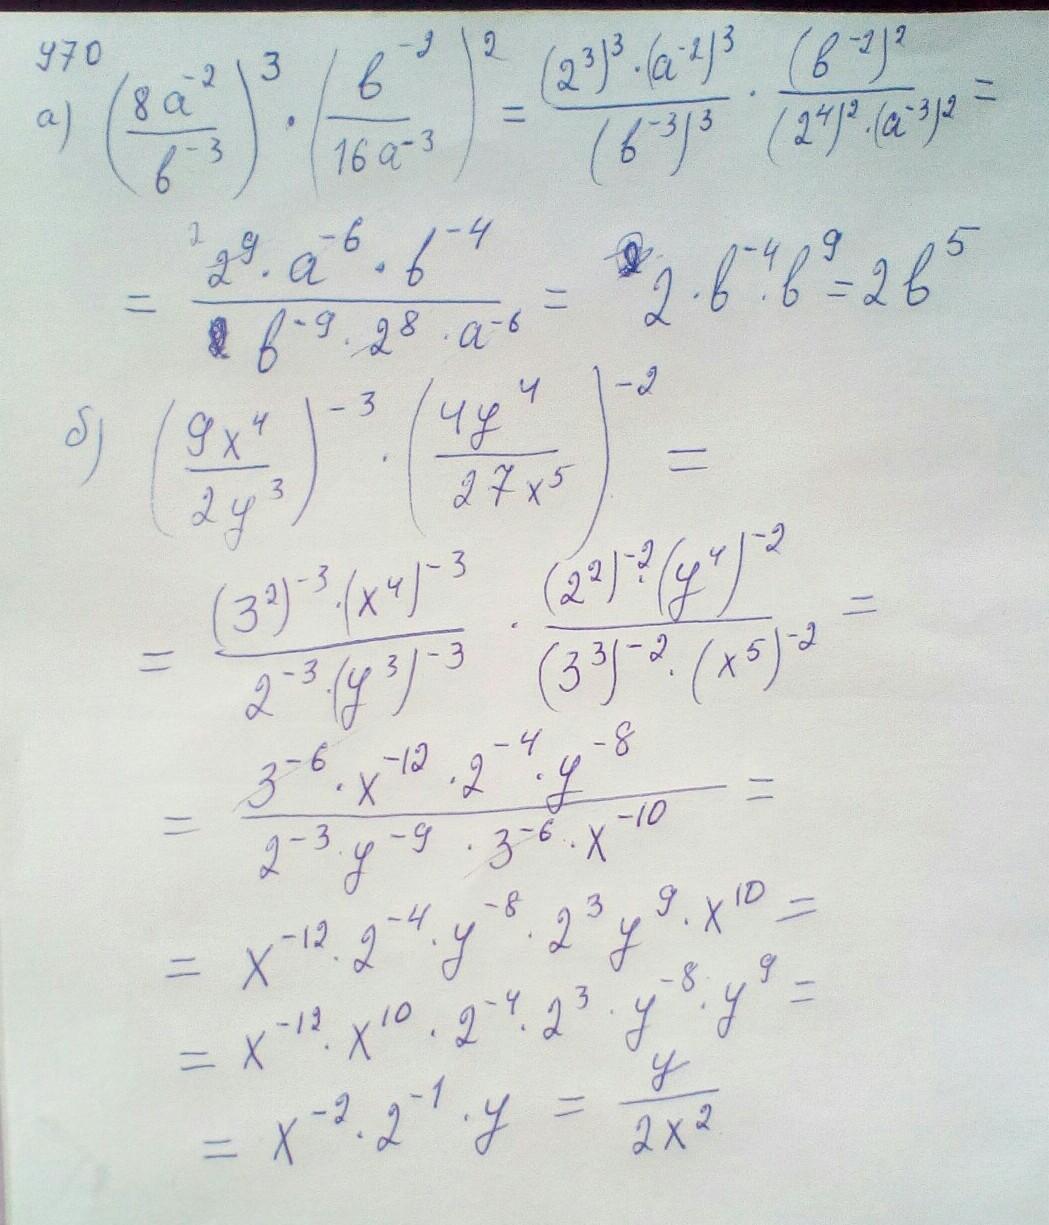 970
а) (8a⁻²/b⁻³)³ · (b⁻²/16a⁻³)² = (2³)³·(a⁻²)³/(b⁻³)³ · (b⁻²)²/(2⁴)²·(a⁻³)² =
= 2⁹·a⁻⁶·b⁻⁴/b⁻⁹·2⁸·a⁻⁶ = 2·b⁻⁴·b⁹=2b⁵
б) (9x⁴/2y³)⁻³ · (4y⁴/27x⁵)⁻² =
= (3²)⁻³·(x⁴)⁻³/2⁻³·(y³)⁻³ · (2²)⁻²·(y⁴)⁻²/(3³)⁻²·(x⁵)⁻² =
= 3⁻⁶·x⁻¹²·2⁻⁴·y⁻⁸/2⁻³·y⁻⁹·3⁻⁶·x⁻¹⁰ =
= x⁻¹²·2⁻⁴·y⁻⁸·2³y⁹·x¹⁰ =
= x⁻¹²·x¹⁰·2⁻⁴·2³·y⁻⁸·y⁹ =
= x⁻²·2⁻¹·y = y/2x²